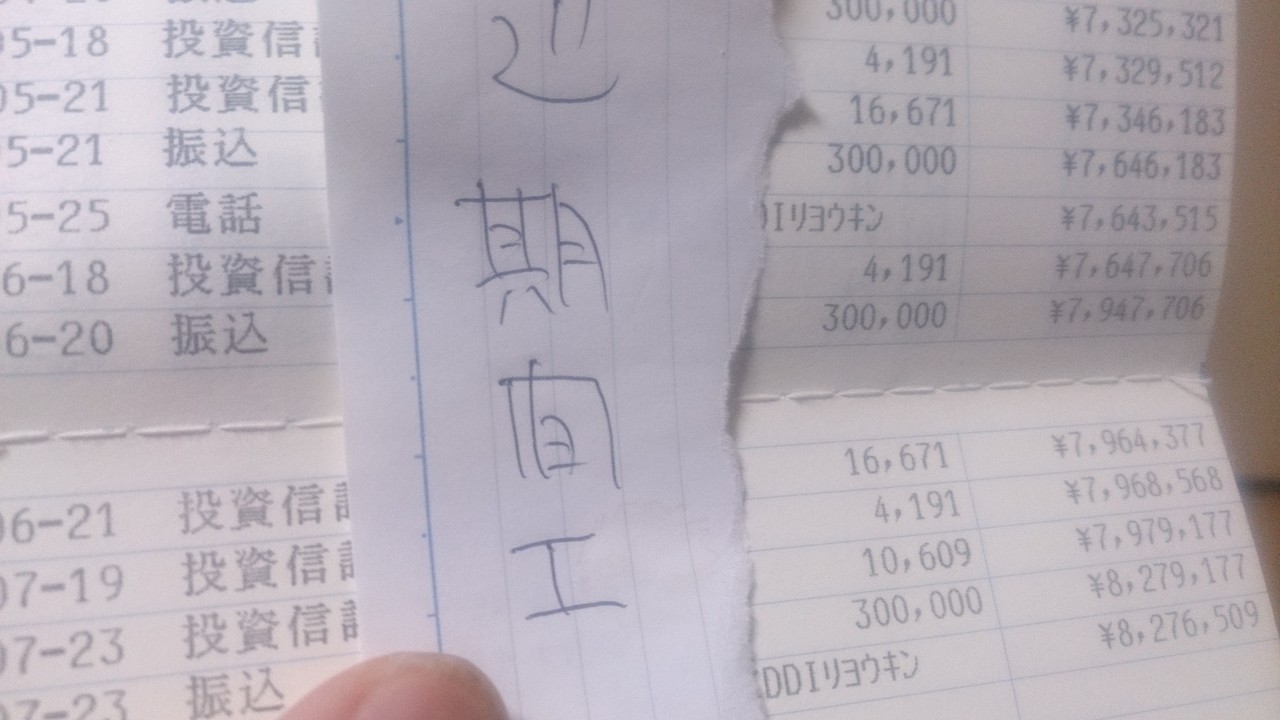 300,000 ¥7,325,321
05-18 投資信 4,191 ¥7,329,512
05-21 投資信 16,671 ¥7,346,183
5-21 振込 300,000 ¥7,646,183
5-25 電話 DIリヨウキン ¥7,643,515
6-18 投資信 4,191 ¥7,647,706
6-20 振込 300,000 ¥7,947,706
06-21 投資信 16,671 ¥7,964,377
07-19 投資信 4,191 ¥7,968,568
07-23 投資信 10,609 ¥7,979,177
07-23 振込 300,000 ¥8,279,177
KDDIリヨウキン ¥8,276,509
期
間
工